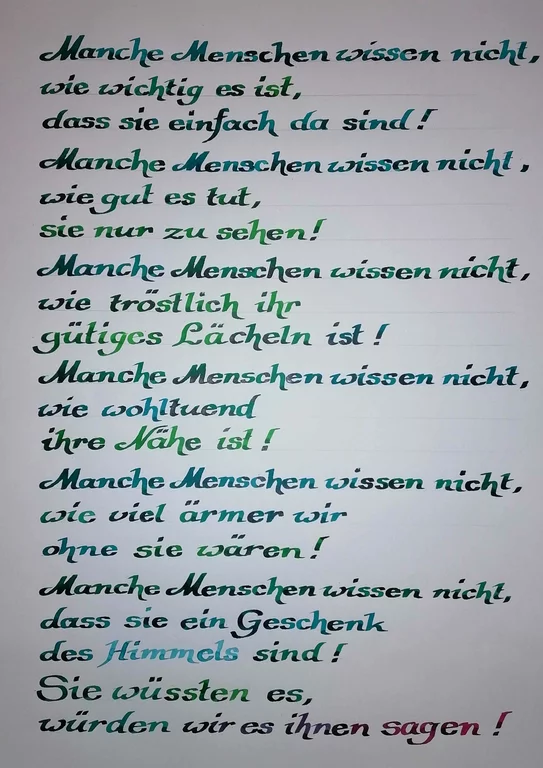 Manche Menschen wissen nicht,
wie wichtig es ist,
dass sie einfach da sind!
Manche Menschen wissen nicht,
wie gut es tut,
sie nur zu sehen!
Manche Menschen wissen nicht,
wie tröstlich ihr
gütiges Lächeln ist!
Manche Menschen wissen nicht,
wie wohltuend
ihre Nähe ist!
Manche Menschen wissen nicht,
wie viel ärmer wir
ohne sie wären!
Manche Menschen wissen nicht,
dass sie ein Geschenk
des Himmels sind!
Sie wüssten es,
würden wir es ihnen sagen!